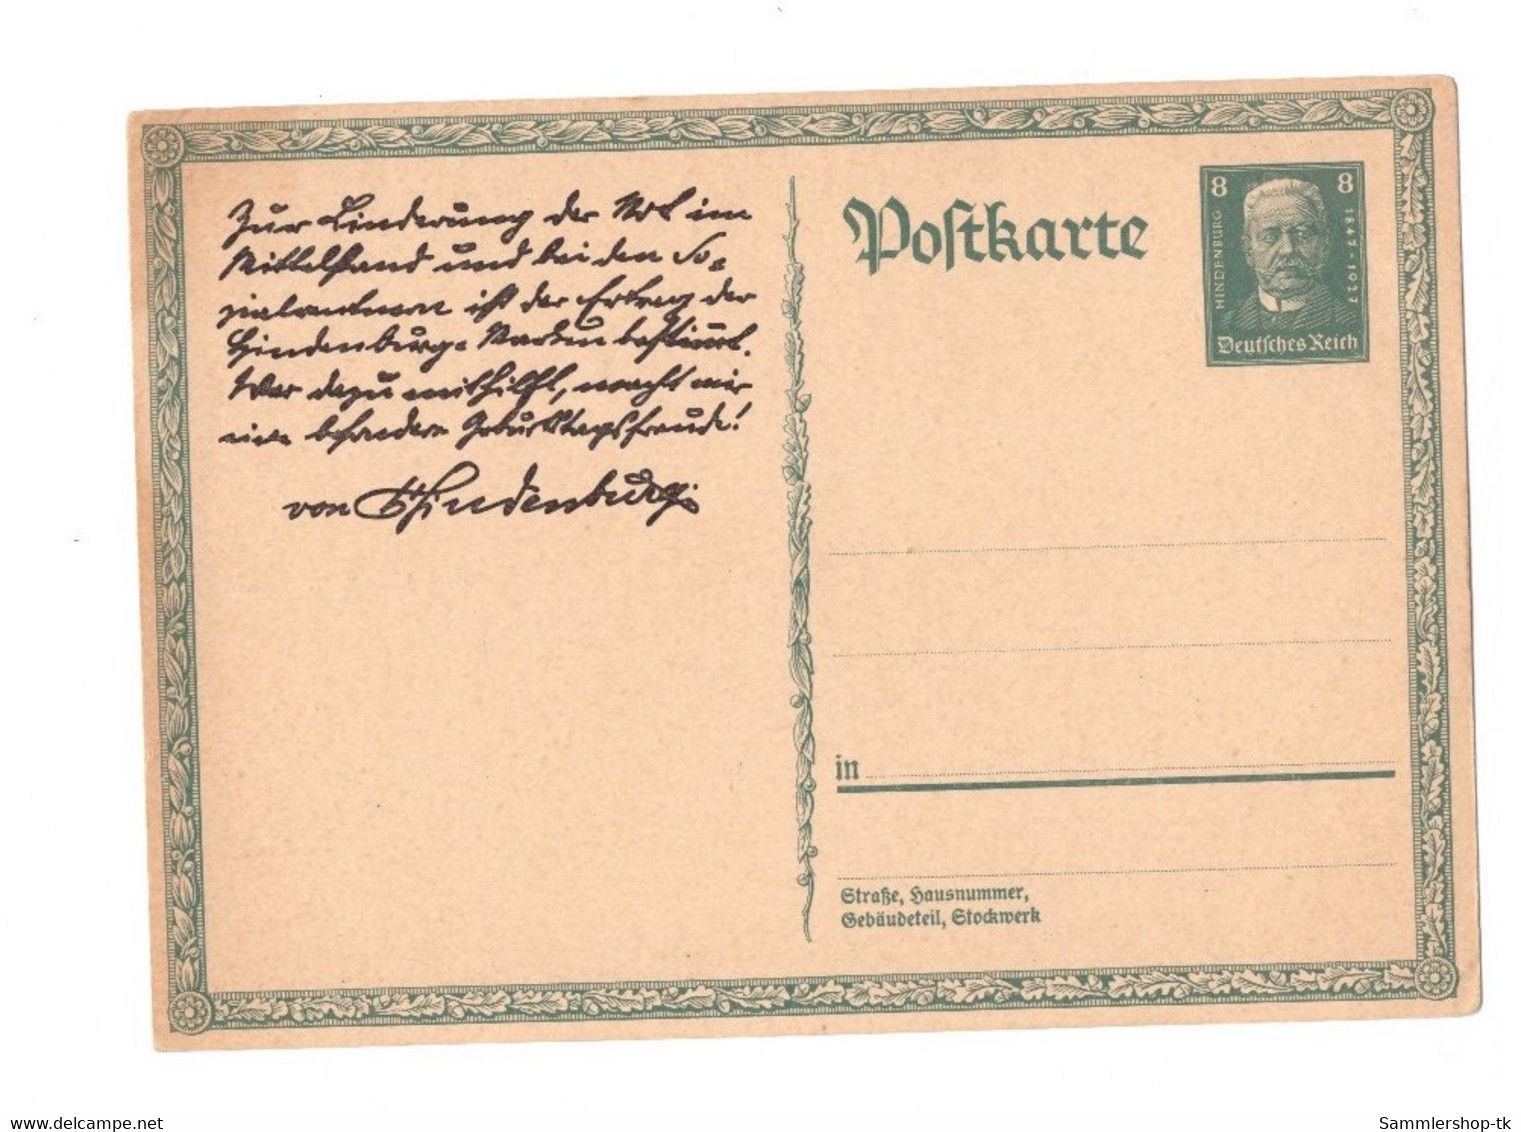 Zur Linderung der Not im
Mittelstand und bei den So-
zialrentnern ist der Ertrag der
Hindenburg-Marken bestimmt.
Wer dazu mithilft, macht mir
eine besondere Geburtstagsfreude!
von Hindenburg.
Postkarte
8 8
HINDENBURG
1847-1927
Deutsches Reich
in
Straße, Hausnummer,
Gebäudeteil, Stockwerk
www.delcampe.net
Sammlershop-tk